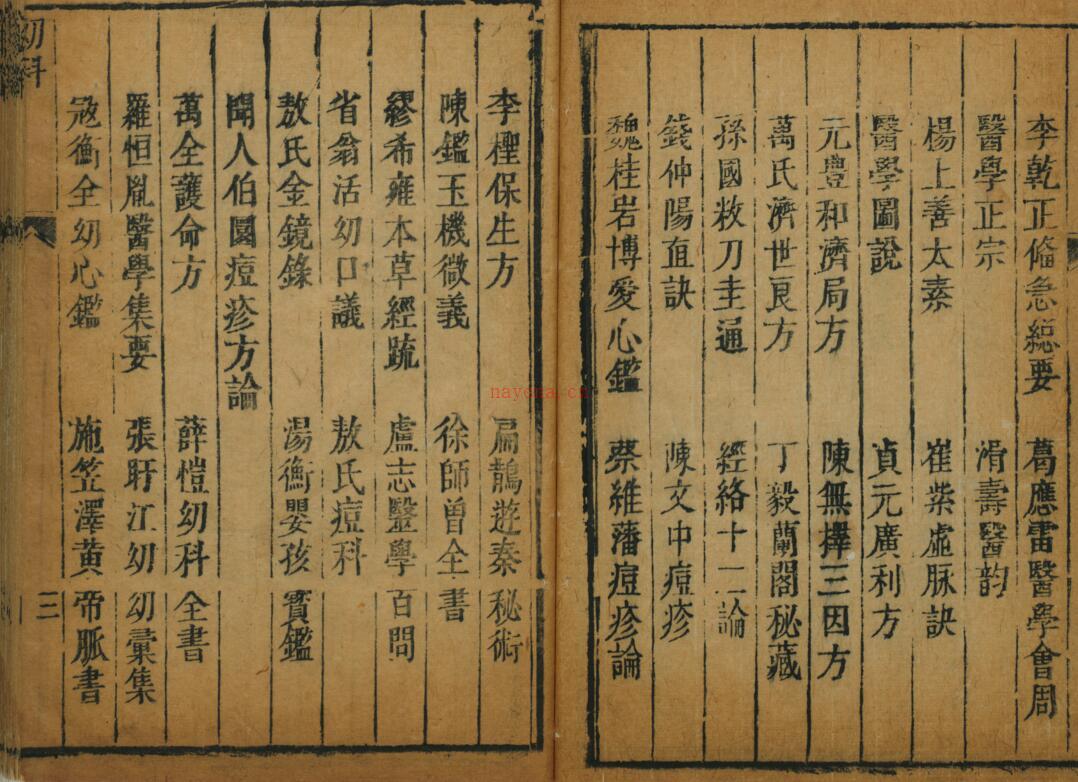 李乾正俻急総要　葛應雷醫學會周
醫學正宗　滑壽醫韵
楊上善太素　崔紫虛脉訣
醫學圖說　貞元廣利方
元豊和濟局方　陳無擇三因方
萬氏濟世良方　丁毅蘭閣秘藏
孫國敉刀圭通　經絡十二論
錢仲陽直訣　陳文中痘疹
魏桂岩博愛心鑑　蔡維藩痘疹論
李檉保生方　扁鵲遊秦秘術
陳鑑玉機微義　徐師曾全書
繆希雍本草經疏　盧志醫學百問
省翁活幼口議　敖氏痘科
敖氏金鏡錄　湯衡嬰孩寳鑑
聞人伯圜痘疹方論
萬全護命方　薛愷幼科全書
羅恒胤醫學集要　張盱江幼幼彙集
冦衡全幼心鑑　施笠澤黄帝脈書
幼科
三